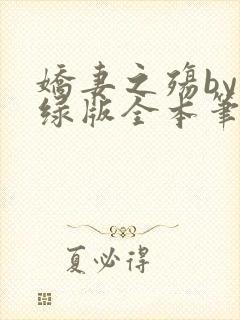 娇妻之殇by
绿版全本笔
夏必得